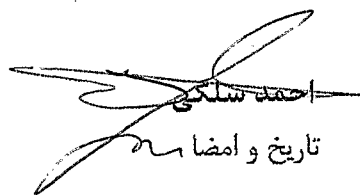 احمد سلکی
تاریخ و امضا